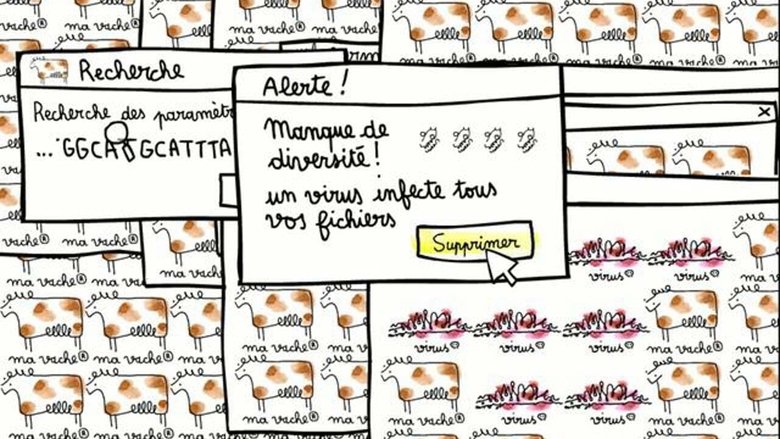 ma vache®
ma vache®
ma vache®
ma vache®
ma vache®
ma vache®
Recherche
Recherche des paramètr
...GGCATGCATTTA
Alerte !
Manque de
diversité !
un virus infecte tous
vos fichiers
Supprimer
ma vache®
ma vache®
virus®
virus®
ma vache®
ma vache®
ma vache®
ma vache®
virus®
virus®
virus®
ma vache®
ma vache®
ma vache®
ma vache®
ma vache®
virus®
virus®
ma vache®